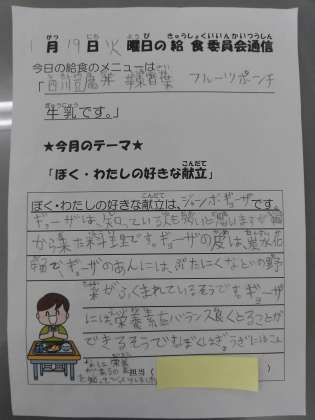 1月19日火曜日の給食委員会通信
今日の給食のメニューは
「四川豆腐 フルーツポンチ
牛乳です。」
★今月のテーマ★
「ぼく・わたしの好きな献立」
ぼく・わたしの好きな献立は、ジャンボギョーザです。
ギョーザは、知っている人も多いと思いますが
から来た料理です。ギョーザの皮は、炭水化
物で、ギョーザのあんには、ぶたにくなどの野
菜がふくまれているそうです。ギョーザ
には栄養素をバランス良くとることが
できるそうです。
担当( )